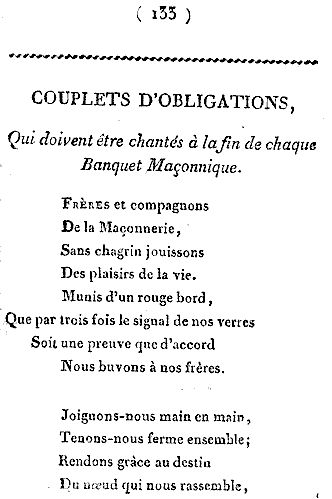 ( 133 )
COUPLETS D'OBLIGATIONS,
Qui doivent être chantés à la fin de chaque
Banquet Maçonnique.
FRÈRES et compagnons
De la Maçonnerie,
Sans chagrin jouissons
Des plaisirs de la vie.
Munis d'un rouge bord,
Que par trois fois le signal de nos verres
Soit une preuve que d'accord
Nous buvons à nos frères.
Joignons-nous main en main,
Tenons-nous ferme ensemble;
Rendons grâce au destin
Du nœud qui nous rassemble,